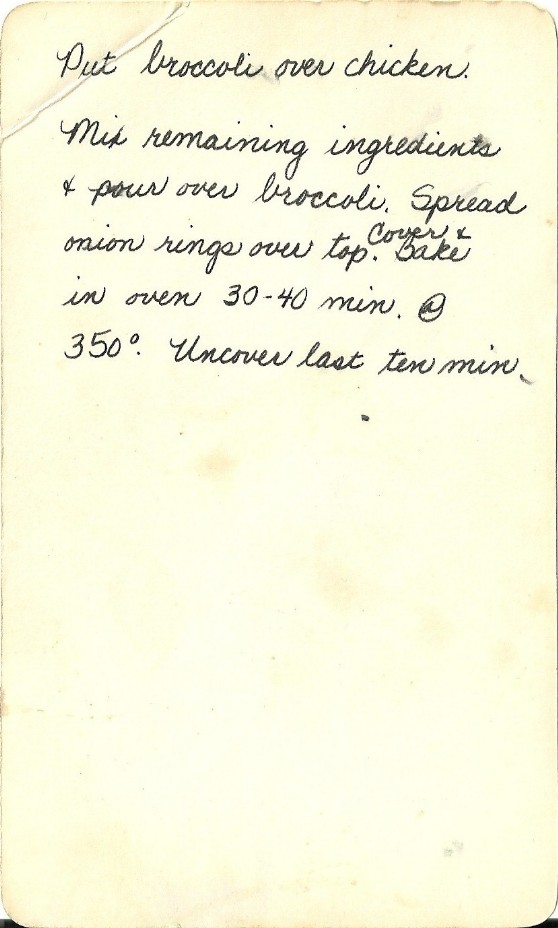 Put broccoli over chicken.
Mix remaining ingredients
& pour over broccoli. Spread
onion rings over top. Cover & Bake
in oven 30-40 min. @
350°. Uncover last ten min.